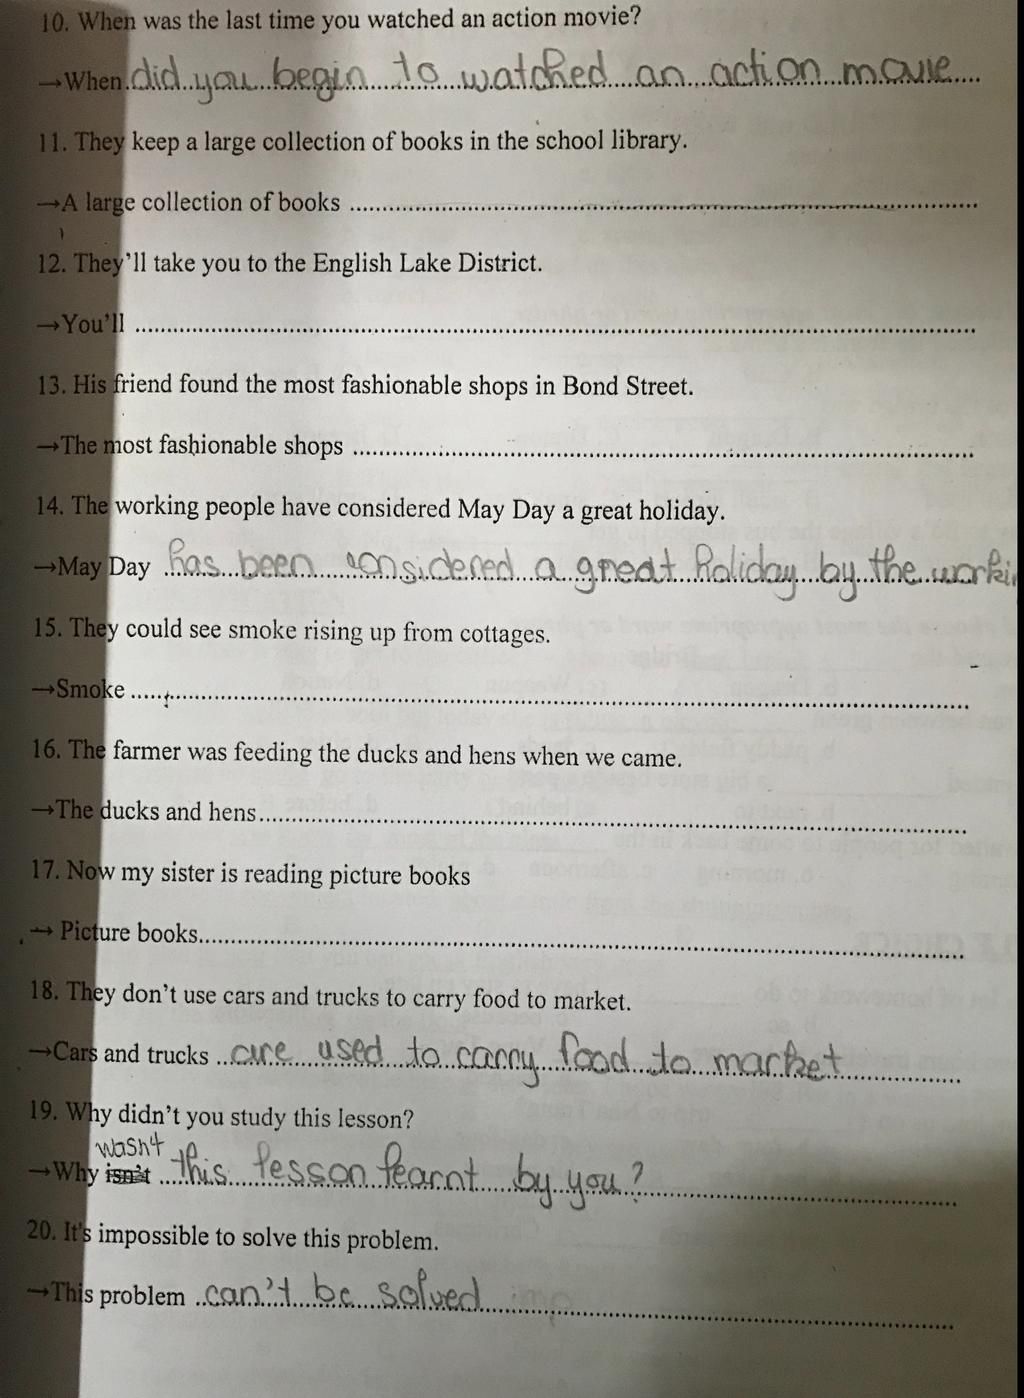 10. When was the last time you watched an action movie?
→When did you begin to watched an action movie
11. They keep a large collection of books in the school library.
→A large collection of books
12. They'll take you to the English Lake District.
→You'll
13. His friend found the most fashionable shops in Bond Street.
→The most fashionable shops
14. The working people have considered May Day a great holiday.
→May Day has been considered a great holiday by the workin
15. They could see smoke rising up from cottages.
→Smoke
16. The farmer was feeding the ducks and hens when we came.
→The ducks and hens
17. Now my sister is reading picture books
→ Picture books
18. They don't use cars and trucks to carry food to market.
→Cars and trucks are used to carry food to market
19. Why didn't you study this lesson?
wasn't
→Why isn't this lesson learnt by you?
20. It's impossible to solve this problem.
→This problem can't be solved